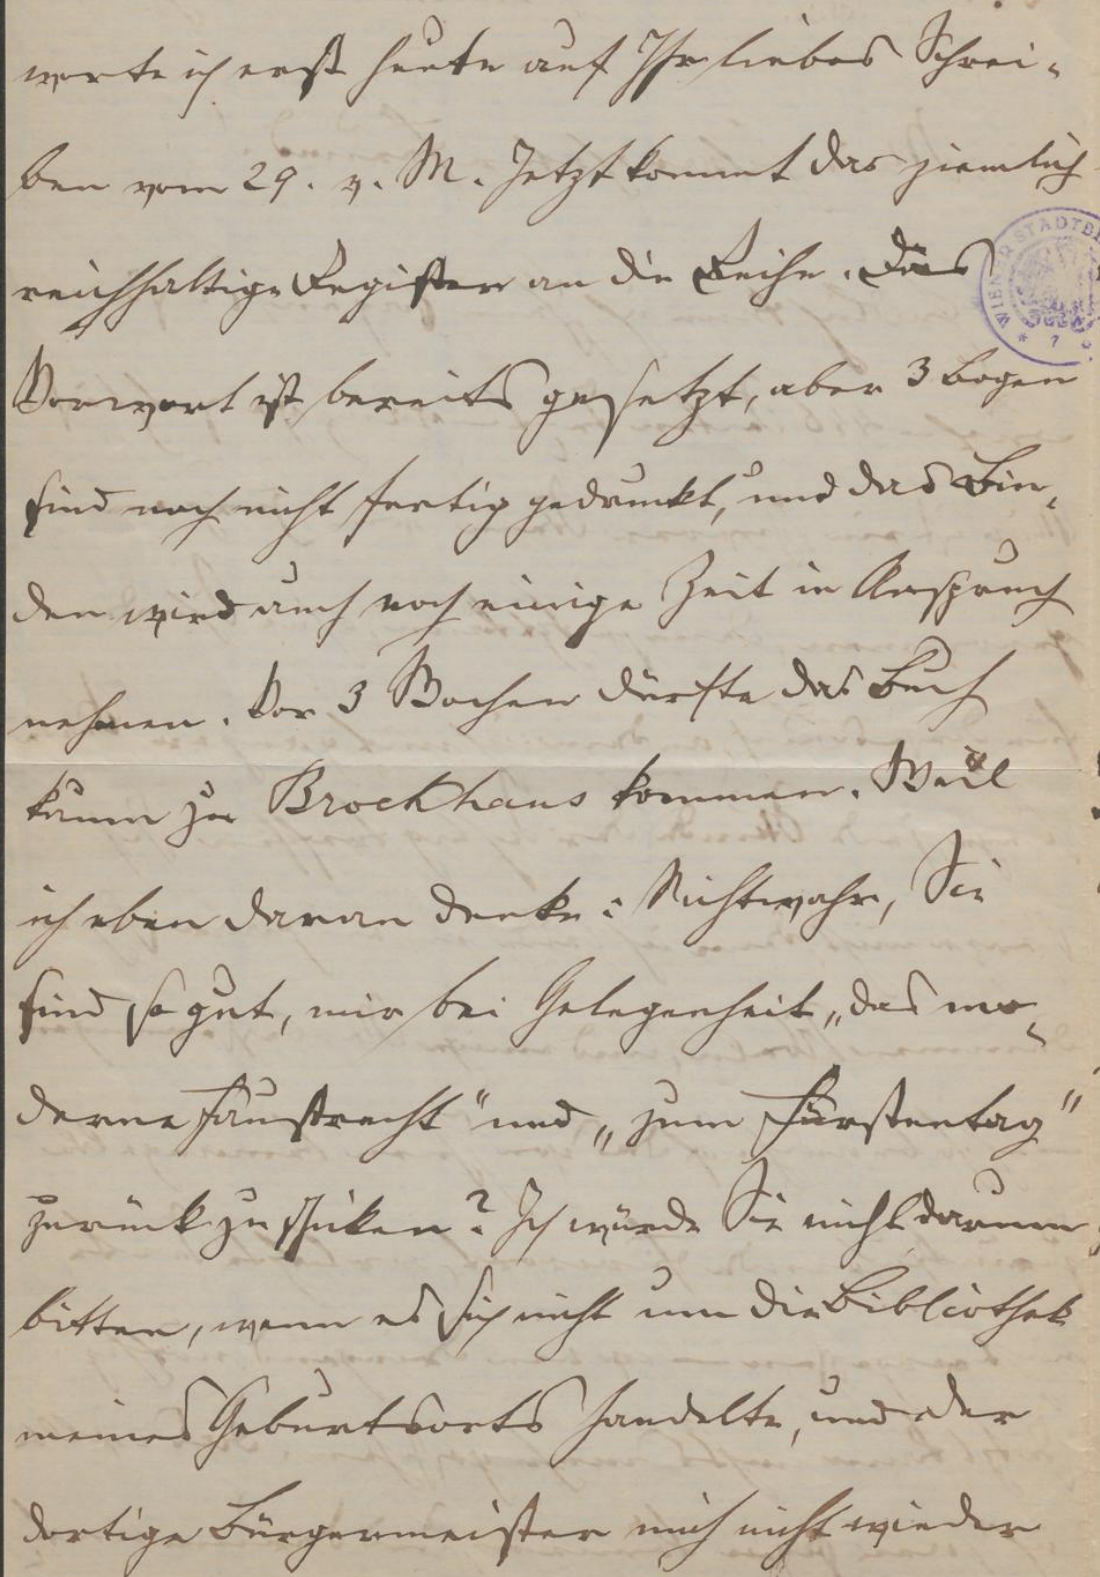 worte ich erst heute auf Ihr liebes Schrei-
ben vom 29. v. M. Jetzt kommt das ziemlich
reichhaltige Register an die Reihe. Das
Vorwort ist bereits gesetzt, aber 3 Bogen
sind noch nicht fertig gedruckt, und das Bin-
den wird auch noch einige Zeit in Anspruch
nehmen. Vor 3 Wochen dürfte das Buch
kaum zu Brockhaus kommen. Weil
ich eben daran denke: Nichtwahr, Sie
sind so gut, mir bei Gelegenheit „das mo-
derne Faustrecht" und „zum Fürstentag"
zurück zu schicken? Ich würde Sie nicht darum
bitten, wenn es sich nicht um die Bibliothek
meines Geburtsorts handelte, und der
dortige Bürgermeister mich nicht wieder
WIENER STADTB
* 7